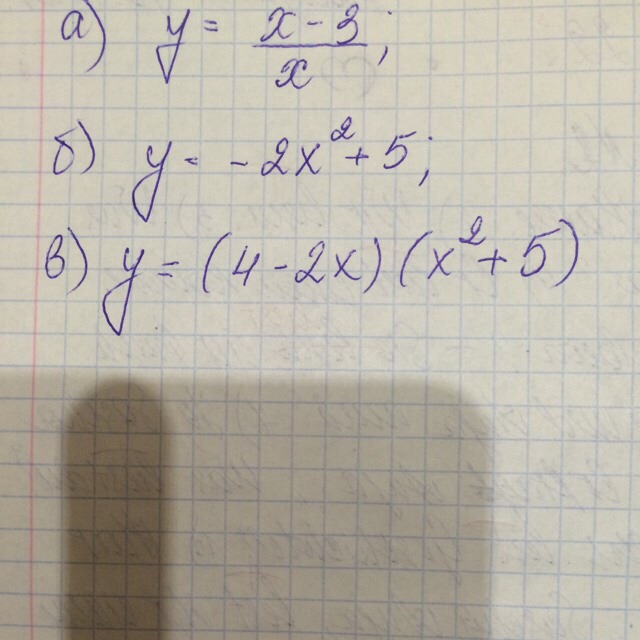 а) y = x - 3 / x ;
б) y = -2x² + 5;
в) y = (4 - 2x)(x² + 5)